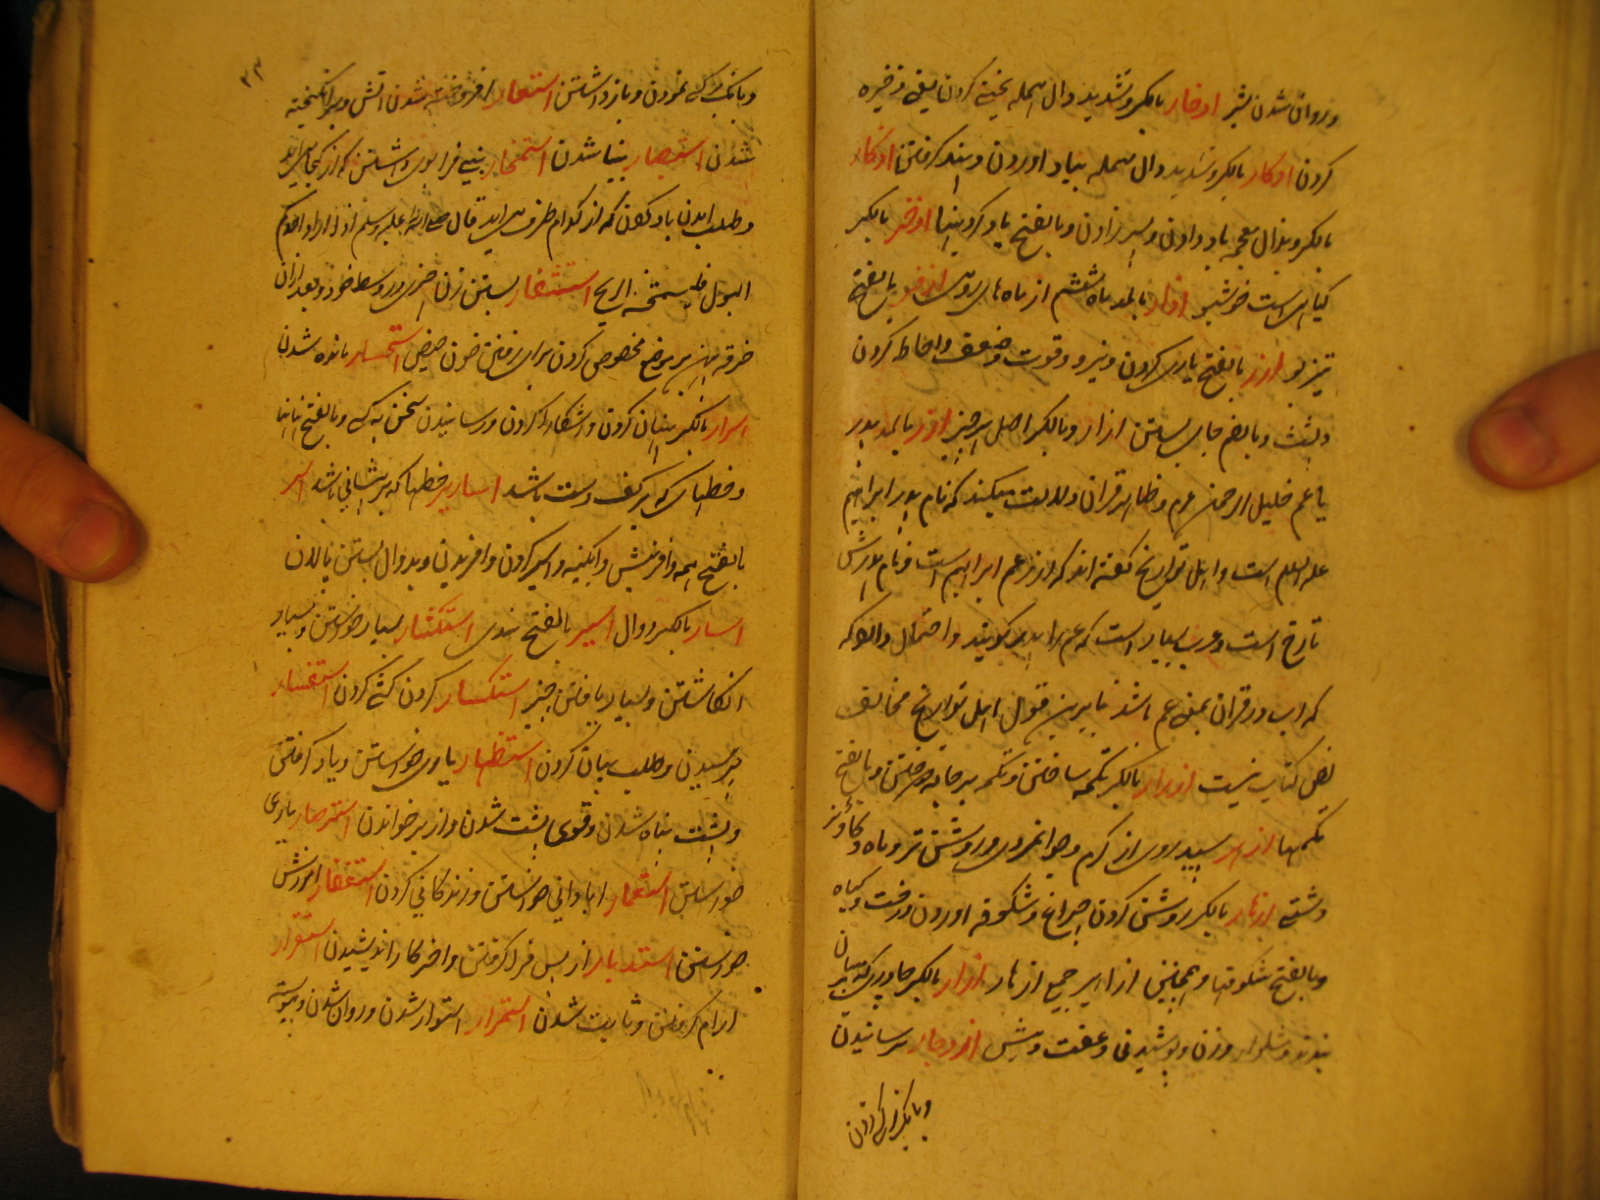 و روان شدن شیر ادخار بالکسر و تشدید دال مهمله یخنی کردن یعنی ذخیره
کردن ادکار بالکسر و تشدید دال مهمله بیاد اوردن و پند کرفتن اذکار
بالکسر و بذال معجمه یاد دادن و پسر زادن و بالفتح یاد کردنیها اذخر بالکسر
کیاهی است خوشبو اذار بالمد ماه ششم از ماه های رومی اذفر بالفتح
تیز بو ازر بالفتح یاری کردن و نیرو و قوت و ضعف و احاطه کردن
و پشت و بالضم جای بستن ازار و بالکسر اصل هر چیز ازر بالمد پدر
یا عم خلیل الرحمن عم و ظاهر قران دلالت میکند که نام پدر ابراهیم
علیه السلام است و اهل تواریخ کفته اند که ازر عم ابراهیم است و نام پدرش
تارخ است و عرب بسیار است که عم را پدر کویند و احتمال دارد که
که اب در قران بمعنی عم باشد بنابرین قول اهل تواریخ مخالف
نص کتاب نیست ازرار بالکسر تکمه ساختن و تکمه به جامه دوختن و بالفتح
تکمها ازهر سپید روی از کرم و جوانمردی و روشن تر و ماه و کاو نر
دشتی ازهار بالکسر روشن کردن چراغ و شکوفه اوردن درخت و کیاه
و بالفتح شکوفها و همچنین ازاهیر جمع ازهار ازار بالکسر چادری که بر میان
بندند و شلوار و زن و پوشیدنی و عفت و میش ازدجار ترسانیدن
و بانک زدن
و بانک بر کسی نمودن و باز داشتن استعار افروخته شدن اتش و برانکیخته
شدن استبصار بینا شدن استمخار بینی فرا بوی داشتن که از کجا می اید
و طلب کردن باد کون که از کدام طرف می اید قال صلی الله علیه وسلم اذا اراد احدکم
البول فلیستمخر الریح استثفار بستن زن خرقه در وسط خود و بعد ازان
خرقه بر موضع مخصوص کردن برای رفتن خون حیض استحسار مانده شدن
اسرار بالکسر پنهان کردن و اشکارا کردن و رسانیدن سخن به کسی و بالفتح نهانیها
و خطهای که بر کف دست باشد اساریر خطها که بر پیشانی باشد اسر
بالفتح همه و افرینش و ابکینه و اسیر کردن و افریدن و بدوال بستن پالان
اسار بالکسر دوال اسیر بالفتح بندی استکثار بسیار خواستن و بسیار
انکاشتن و بسیار یافتن چیز استکسار کردن کشی کردن استفسار
پرسیدن و طلب بیان کردن استظهار یاری خواستن و یاد کرفتن
و پشت پناه شدن و قوی پشت شدن و از بر خواندن استنصار یاری
خواستن استعمار ابادانی خواستن و زندکانی کردن استغفار امرزش
خواستن استدبار از پس فرا کرفتن و اخر کار اندیشیدن استقرار
ارام کرفتن و ثابت شدن استمرار استوار شدن و روان شدن و پیوسته